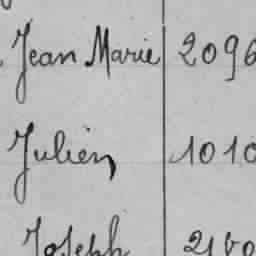 Jean Marie 2096
Julien 1010
Joseph